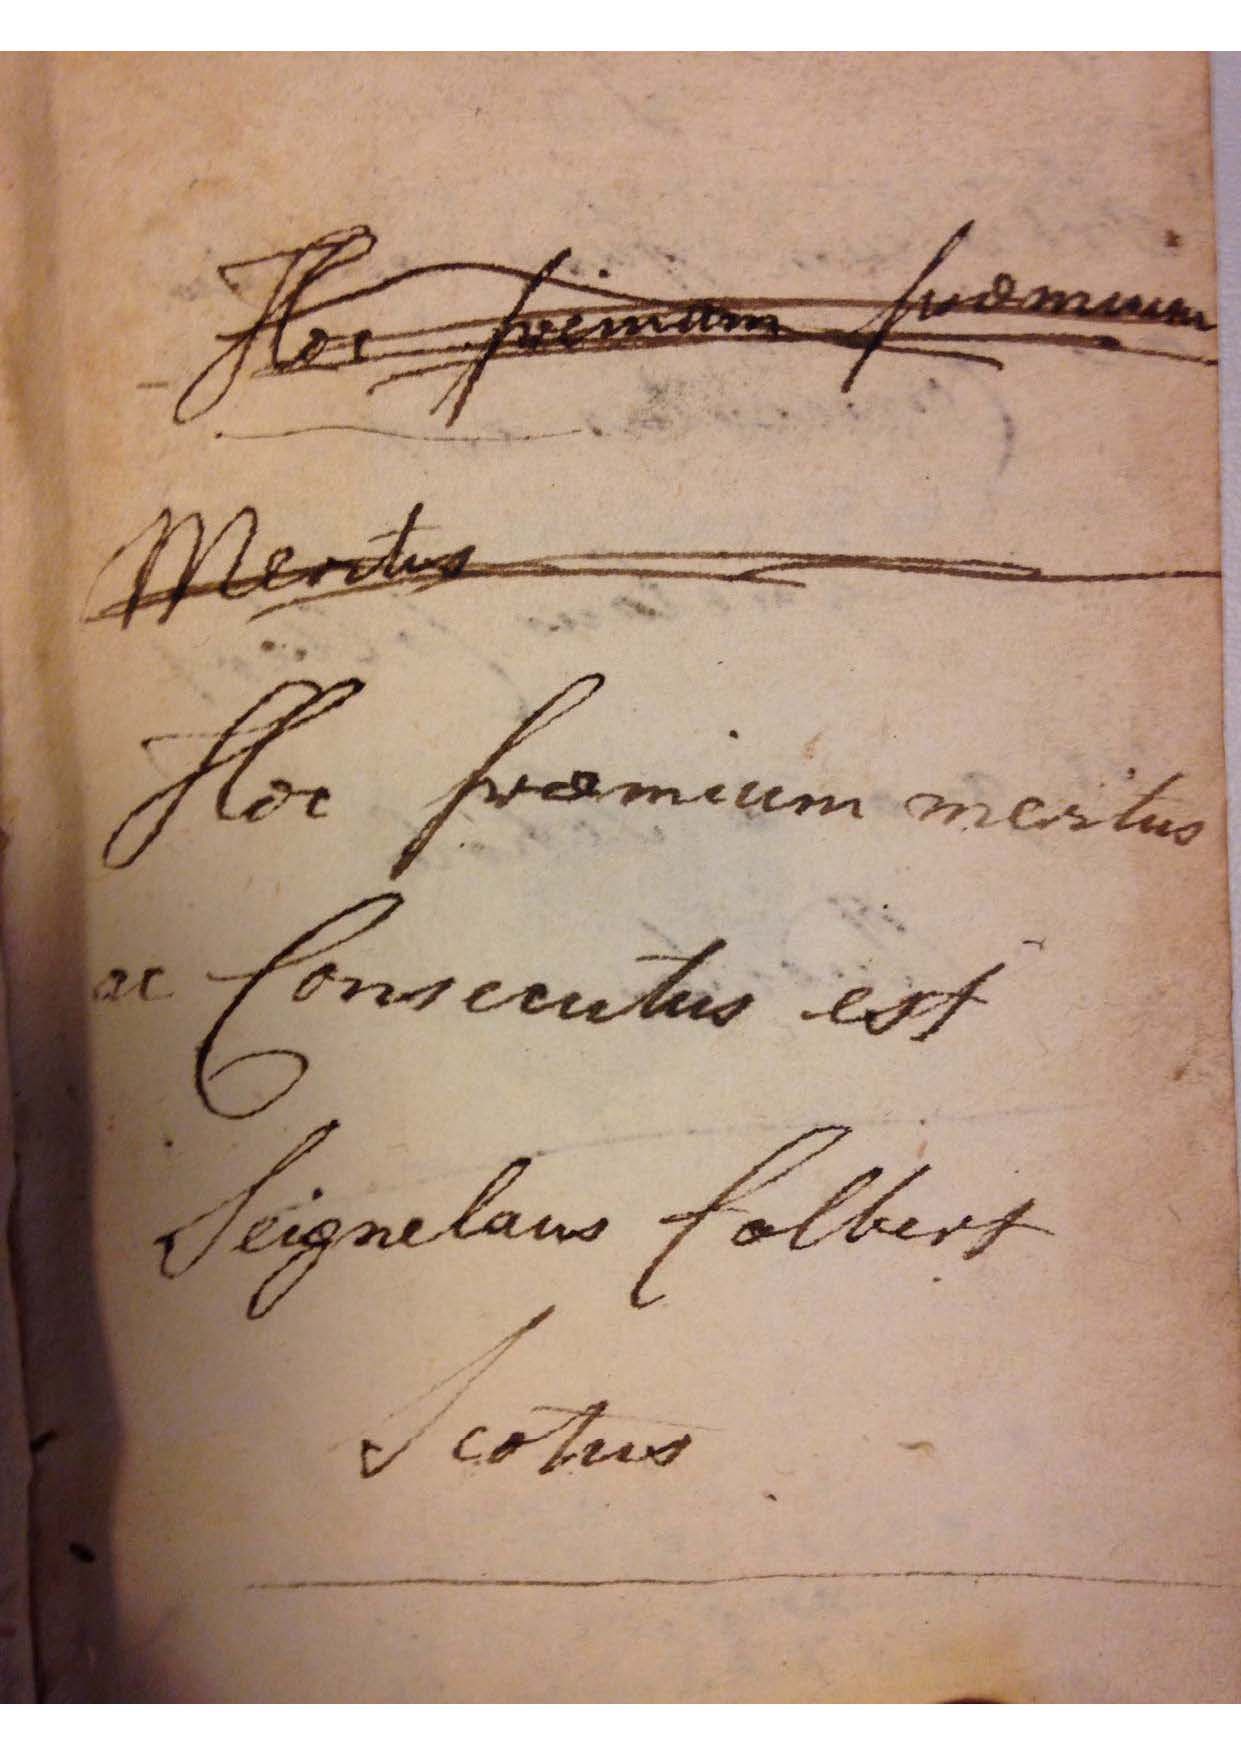 Hoc premium præmium
Meritus
Hoc præmium meritus
ac Consecutus est
Seignelaus Colbert
Scotus